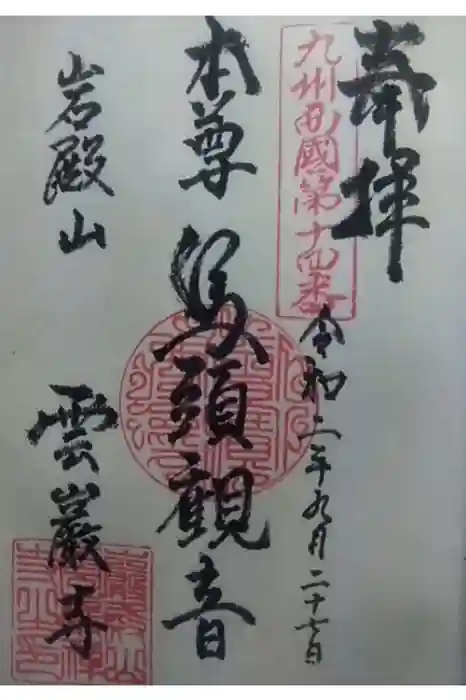 奉拝
九州西國第十四番
令和二年九月二十七日
本尊 馬頭観音
岩殿山
雲巌寺